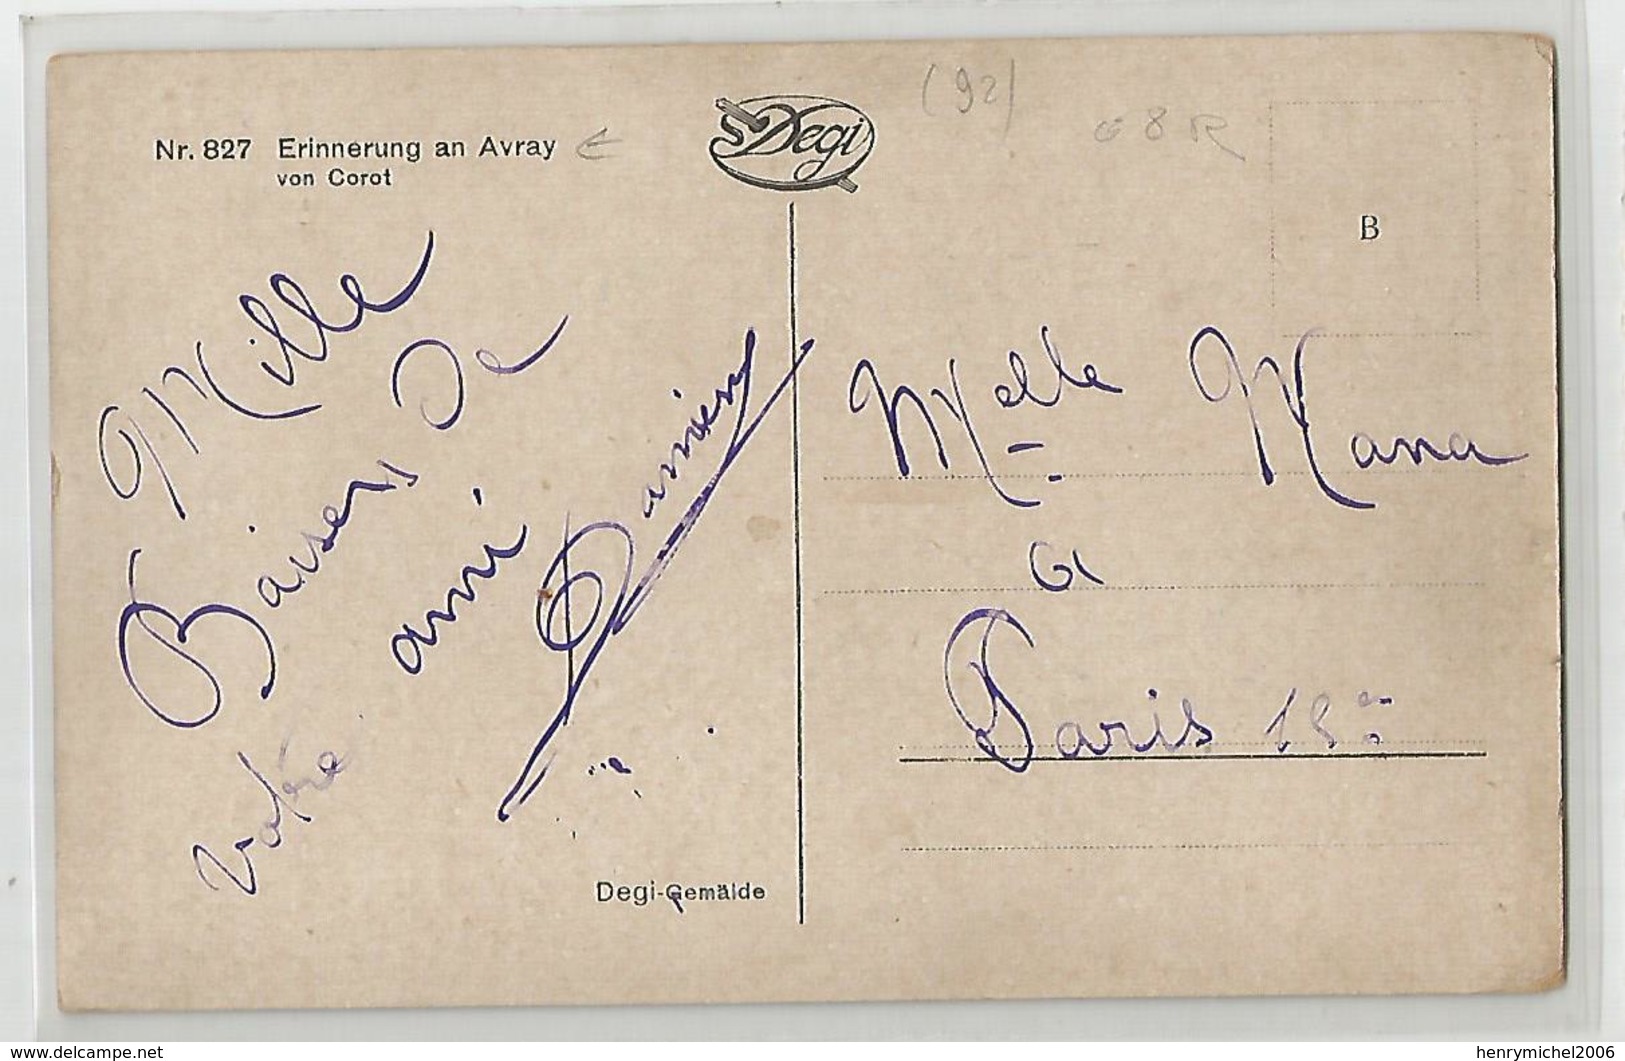 Nr. 827 Erinnerung an Avray
von Corot
Degi
(92)
B
Mille
Baisers de
votre ami
Damien
Degi-Gemälde
Melle Nana
a
Paris 18e
www.delcampe.net
henrymichel2006